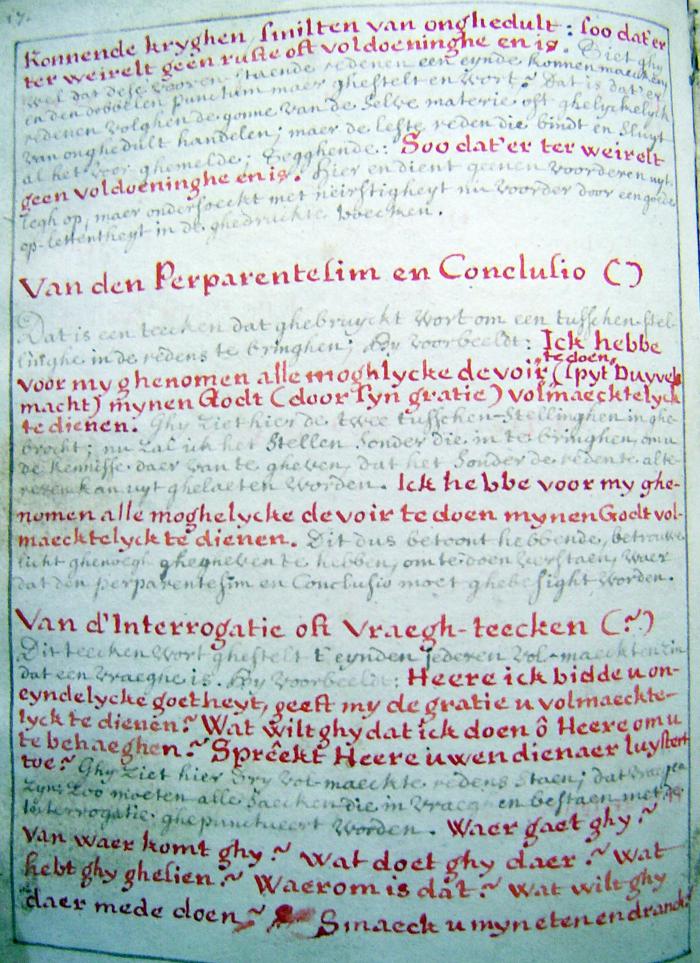 17.
Konnende kryghen, sinilten van onghedult: soo dat'er
ter weirelt geen ruste oft voldoeninghe en is. Siet ghy
wel dat dese vooren-staende redenen een eynde konnen maecken
en den dobbelen punctum maer ghestelt en wort? Dat is dat'er
redenen volghen de gonne van de selve materie oft ghelyckelyck
van onghedult handelen; maer de leste reden die bindt en sluyt
al het voor ghemelde; segghende: Soo dat'er ter weirelt
geen voldoeninghe en is. Hier en dient geenen voorderen uyt-
legh op, maer ondersoeckt met neirstigheyt nu voorder door een goede
op-lettentheyt in de ghedruckte boecken.
Van den Perparentesim en Conclusio ()
Dat is een teecken dat ghebruyckt wort om een tusschen-stel-
linghe in de redens te bringhen; By voorbeeldt: Ick hebbe
te doen
voor my ghenomen alle moghlycke devoir (spyt Duyvels
macht) mynen Godt (door syn gratie) volmaecktelyck
te dienen. Ghy ziet hier de twee tusschen-stellinghen in ghe-
brocht; nu zal ick het stellen sonder die in te bringhen, om u
de kennisse daer van te gheven, dat het sonder de reden te alte-
reren kan uyt ghelaeten worden. Ick hebbe voor my ghe-
nomen alle moghelycke devoir te doen mynen Godt vol-
maecktelyck te dienen. Dit dus betoont hebbende, betrouwe
licht ghenoegh ghegheven te hebben, om te doen verstaen, waer
dat den perparentesim en Conclusio moet ghebesight worden.
Van d'Interrogatie oft Vraegh-teecken (?)
Dit teecken wort ghestelt t'eynden jederen vol-maeckten zin
dat een vraeghe is. By voorbeeldt: Heere ick bidde u on-
eyndelycke goetheyt, geeft my de gratie u volmaeckte-
lyck te dienen? Wat wilt ghy dat ick doen ô Heere om u
te behaeghen? Spreekt Heere uwen dienaer luystert
toe? Ghy ziet hier dry vol-maeckte redens staen; dat vraegen
zyn; zoo moeten alle saecken die in vraegen bestaen met de
Interrogatie ghepunctueert worden. Waer gaet ghy?
van waer komt ghy? Wat doet ghy daer? Wat
hebt ghy ghesien? Waerom is dat? Wat wilt ghy
daer mede doen? Smaeck u myn eten en dranck?